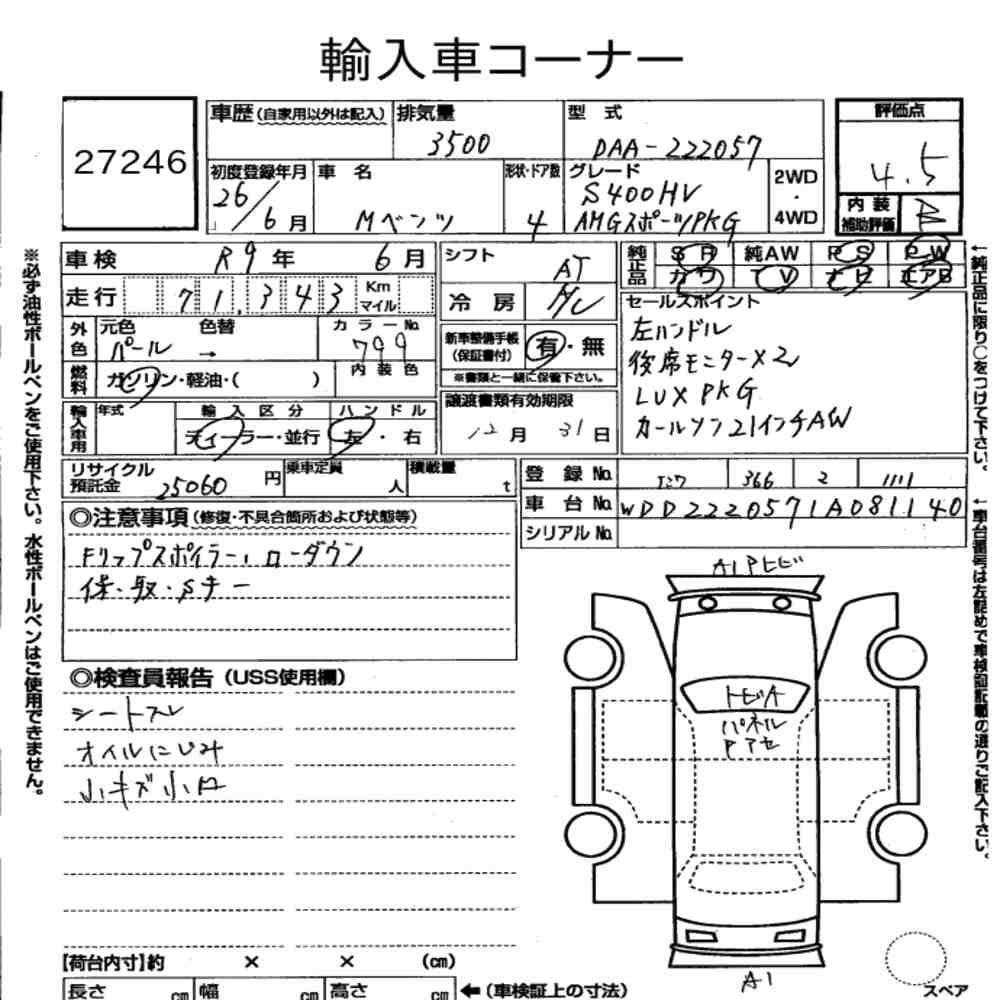 輸入車コーナー
27246
車歴(自家用以外は記入) 排気量 3500 型式 DAA-222057 評価点 4.5
初度登録年月 26/6月 車名 Mベンツ 形状・ドア数 4 グレード S400HV AMGスポーツPKG 2WD・4WD 内装補助評価 B
車検 R9年 6月 シフト AT 純正品 SR 純AW PS PW
カワ TV ナビ エアB
走行 71,343 Km マイル 冷房
外色 元色 パール → 色替 カラーNo. 799 内装色
新車整備手帳(保証書付) 有・無
※書類と一緒に保管下さい。
セールスポイント
左ハンドル
後席モニター×2
LUX PKG
カールソン21インチAW
燃料 ガソリン・軽油・( )
輸入車用 年式 輸入区分 ディーラー・並行 ハンドル 左・右
譲渡書類有効期限 12月 31日
リサイクル預託金 25060円 乗車定員 人 積載量 t
登録No. 366 2 1111
車台No. WDD2220571A081140
シリアルNo.
◎注意事項(修復・不具合箇所および状態等)
Fリップスポイラー、ローダウン
保・取・Sキー
◎検査員報告(USS使用欄)
シートスレ
オイルにじみ
小キズ小凹
A1Pトビ
トビA
パネル
Pアセ
A1
スペア
【荷台内寸】約 × × (cm)
長さ cm 幅 cm 高さ cm ←(車検証上の寸法)
※必ず油性ボールペンをご使用下さい。水性ボールペンはご使用できません。
←純正品に限り○をつけて下さい。
←車台番号は左詰めで車検証記載の通りご記入下さい。